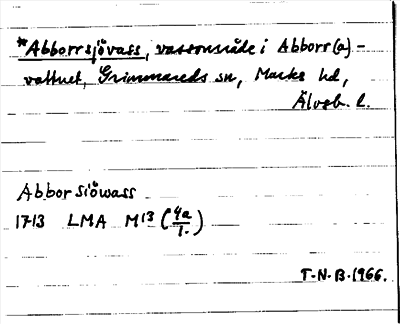 *Abborrsjövass, vassområde i Abborr(a)-
vattnet, Grimmareds sn, Marks hd,
Älvsb. l.
Abbor Siöwass
1713 LMA M13 (4a/1.)
T.N.B. 1966.